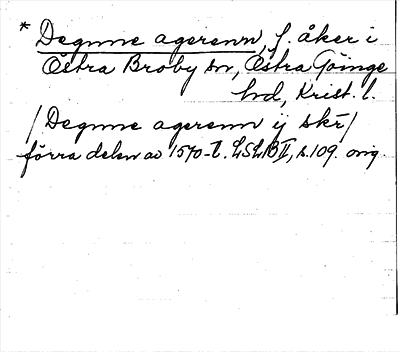 * Degnne agerenn, f. åker i
Östra Broby sn, Östra Göinge
hd, Krist. l.
/Degnne agerenn ij skr/
förra delen av 1570-t. LSLB II, s. 109. orig.